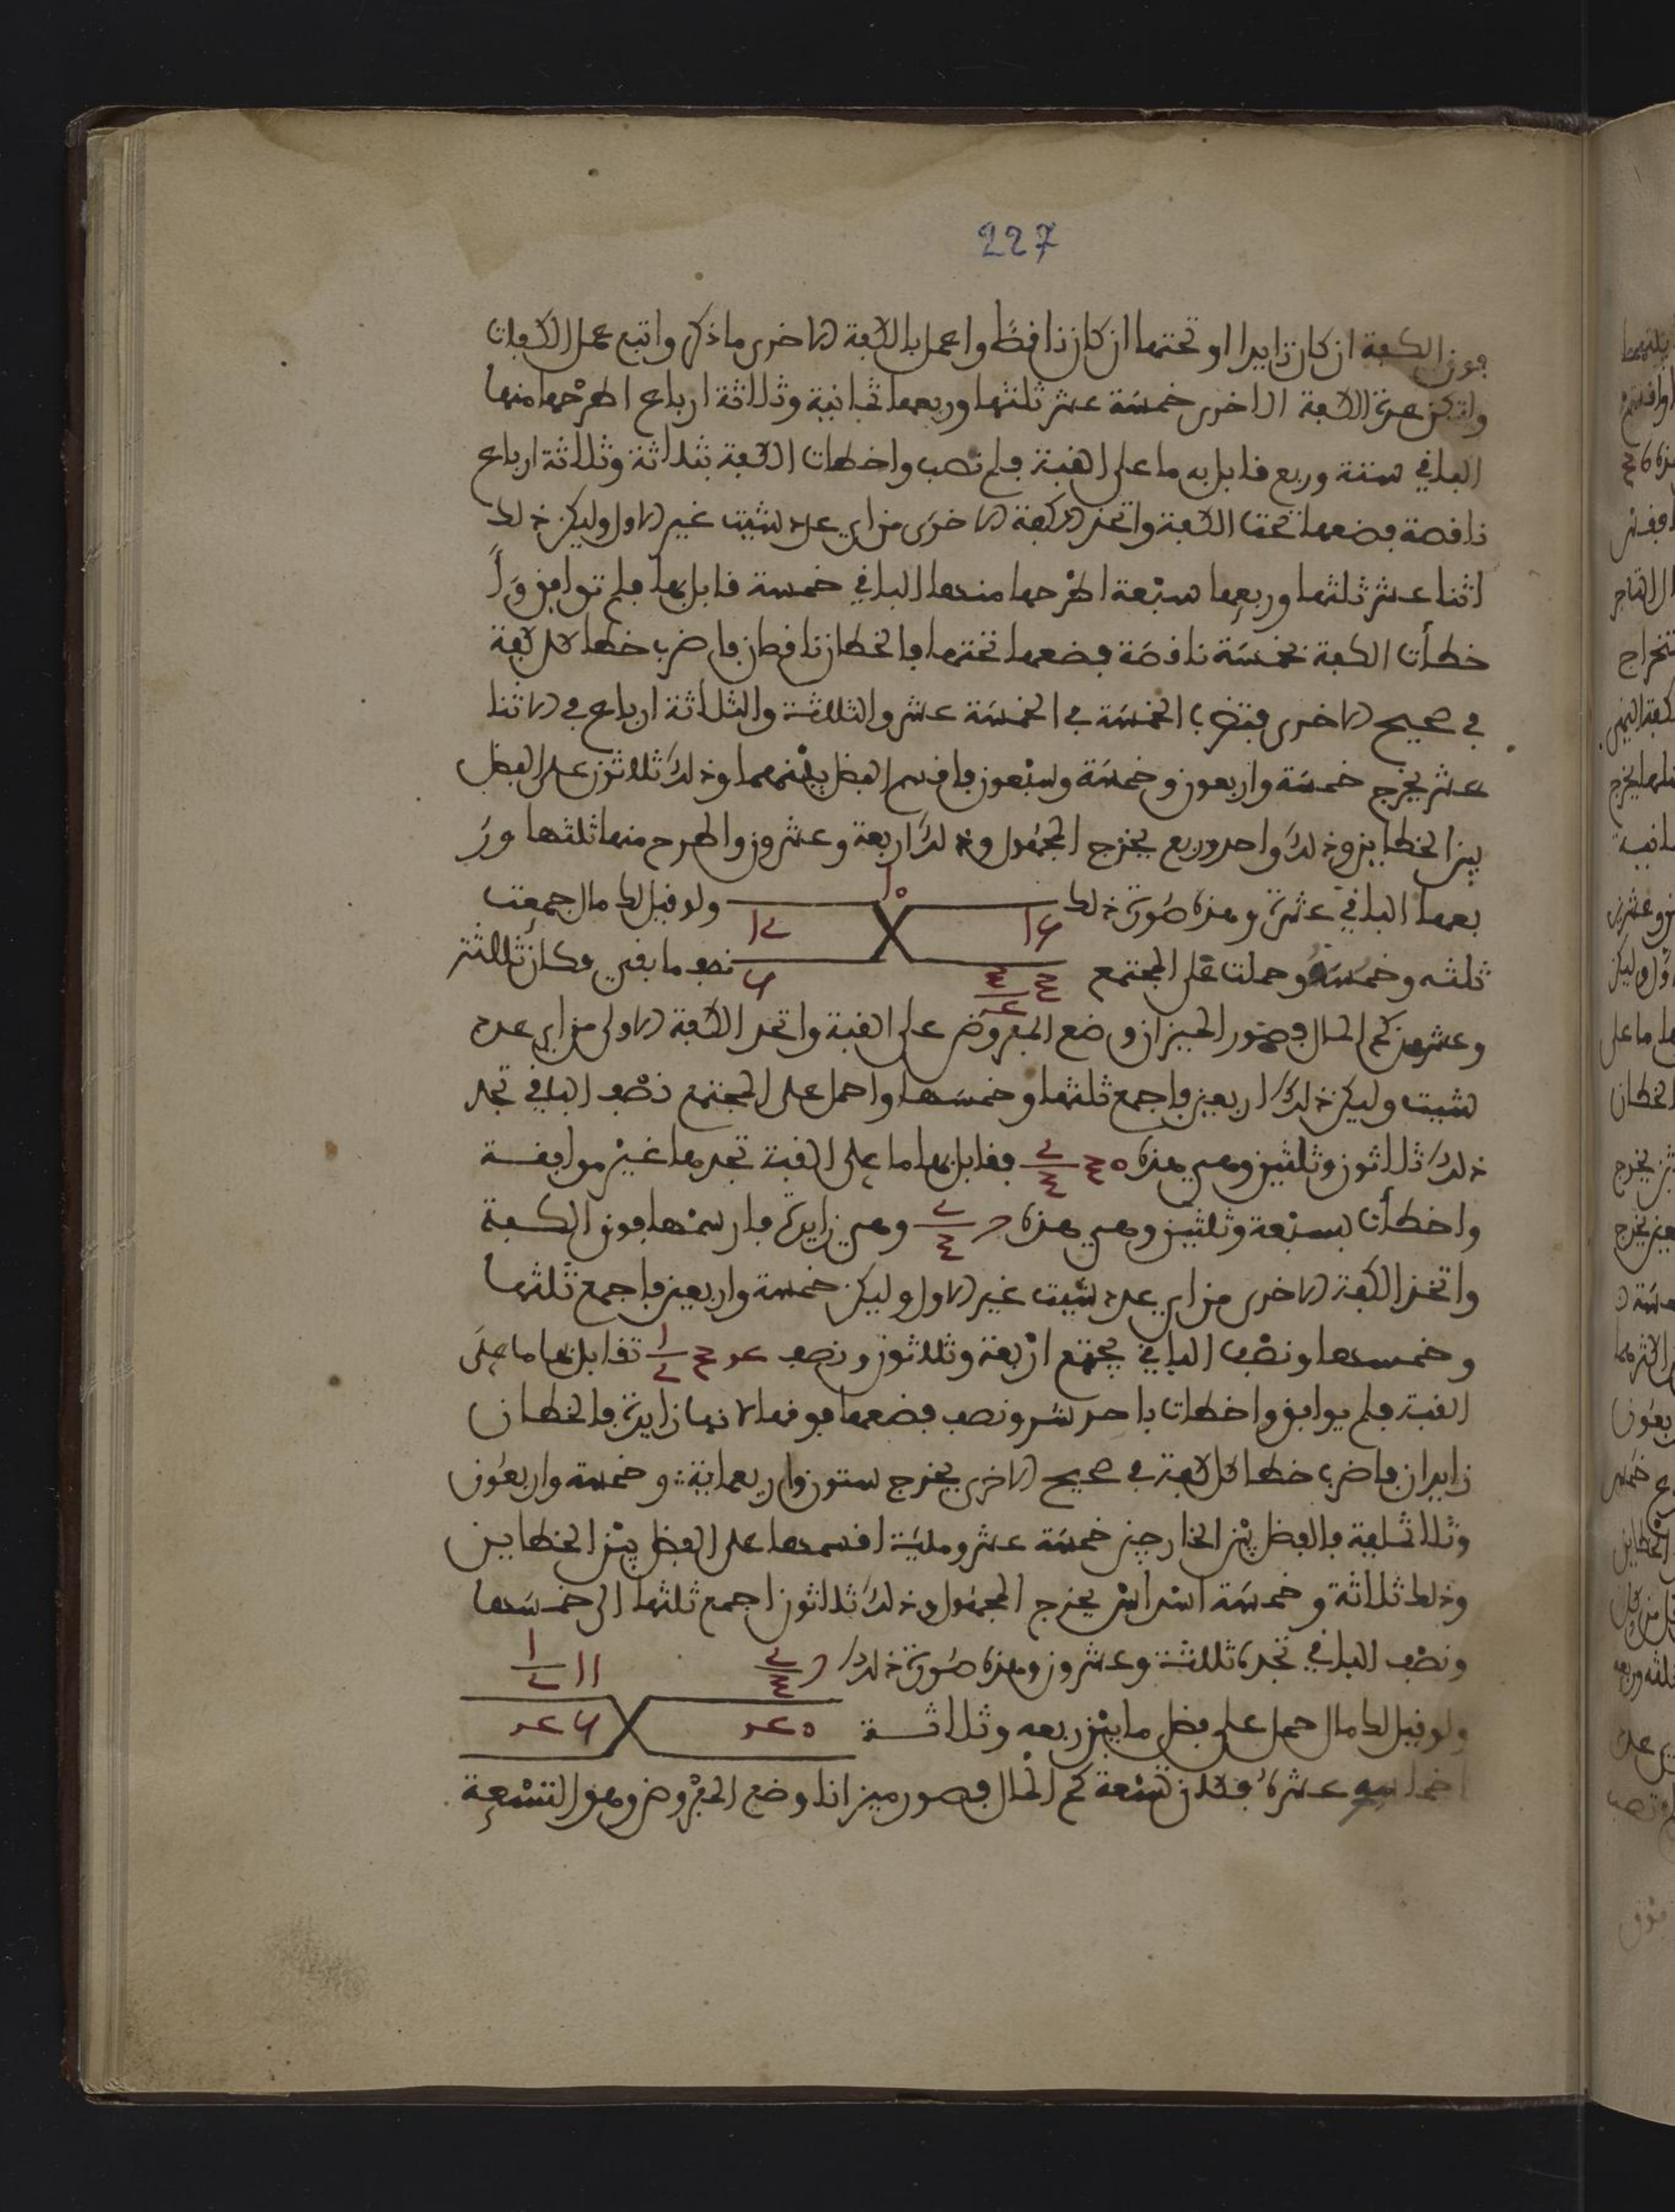 227
فوق الكفة ان كان زايدا او تحتها ان كان ناقصا واعمل بالكفة الاخرى ما ذكر واتبع عمل الكفات
ولتكن هذه الكفة الاخرى خمسة عشر ثلثها وربعها ثمانية وثلاثة ارباع اطرحها منها
الباقي ستة وربع قابل به ما على القبة فلم تصب واخطات الكفة بثلاثة وثلاثة ارباع
ناقصة فضعها تحت الكفة واتخذ الكفة الاخرى من اي عدد شيت غير الاول وليكن ذلك
اثنا عشر ثلثها وربعها سبعة اطرحها منها الباقي خمسة قابل بها فلم توافق وا
خطأت الكفة بخمسة ناقصة فضعها تحتها فالخطان ناقصان فاضرب خطا كل كفة
في صحيح الاخرى فتضرب الخمسة في الخمسة عشر والثلاثة والثلاثة ارباع في الاثنا
عشر يخرج خمسة واربعون وخمسة وسبعون فاقسم الفضل بينهما وذلك ثلاثون على الفضل
بين الخطاين وذلك واحد وربع يخرج المجهول وذلك اربعة وعشرون واطرح منها ثلثها ور
بعها الباقي عشرة وهذه صورة ذلك
ولو قيل لك مال جمعت
ثلثه وخمسه وحملت على المجتمع
نصف ما بقي فكان ثلاثة
وعشرين كم المال فصور الميزان وضع المفروض على القبة واتخذ الكفة الاولى من اي عدد
شيت وليكن ذلك اربعين فاجمع ثلثها وخمسها واحمل على المجتمع نصف الباقي تجد
ذلك ثلاثون وثلثين وهي هذه فقابل بها ما على القبة تجدها غير موافقة
واخطأت بسبعة وثلثين وهي هذه وهي زايدة فارسمها فوق الكفة
واتخذ الكفة الاخرى من اي عدد شيت غير الاول وليكن خمسة واربعين فاجمع ثلثها
وخمسها ونصف الباقي يجتمع اربعة وثلاثون ونصف تقابل بها ما على
القبة فلم يوافق واخطات باحد عشر ونصف فضعها فوقها لانها زايدة فالخطان
زايدان فاضرب خطا كل كفة في صحيح الاخرى يخرج ستون واربعماية وخمسة واربعون
وثلاثماية فالفضل بين الخارجين خمسة عشر ومايه اقسمها على الفضل بين الخطاين
وذلك ثلاثة وخمسة اسداس يخرج المجهول وذلك ثلاثون اجمع ثلثها الى خمسها
ونصف الباقي تجده ثلاثة وعشرون وهذه صورة ذلك
ولو قيل لك مال حمل على فضل ما بين ربعه وثلاثة
اخماسه عشره فكان تسعة كم المال فصور ميزانا وضع المفروض وهو التسعة